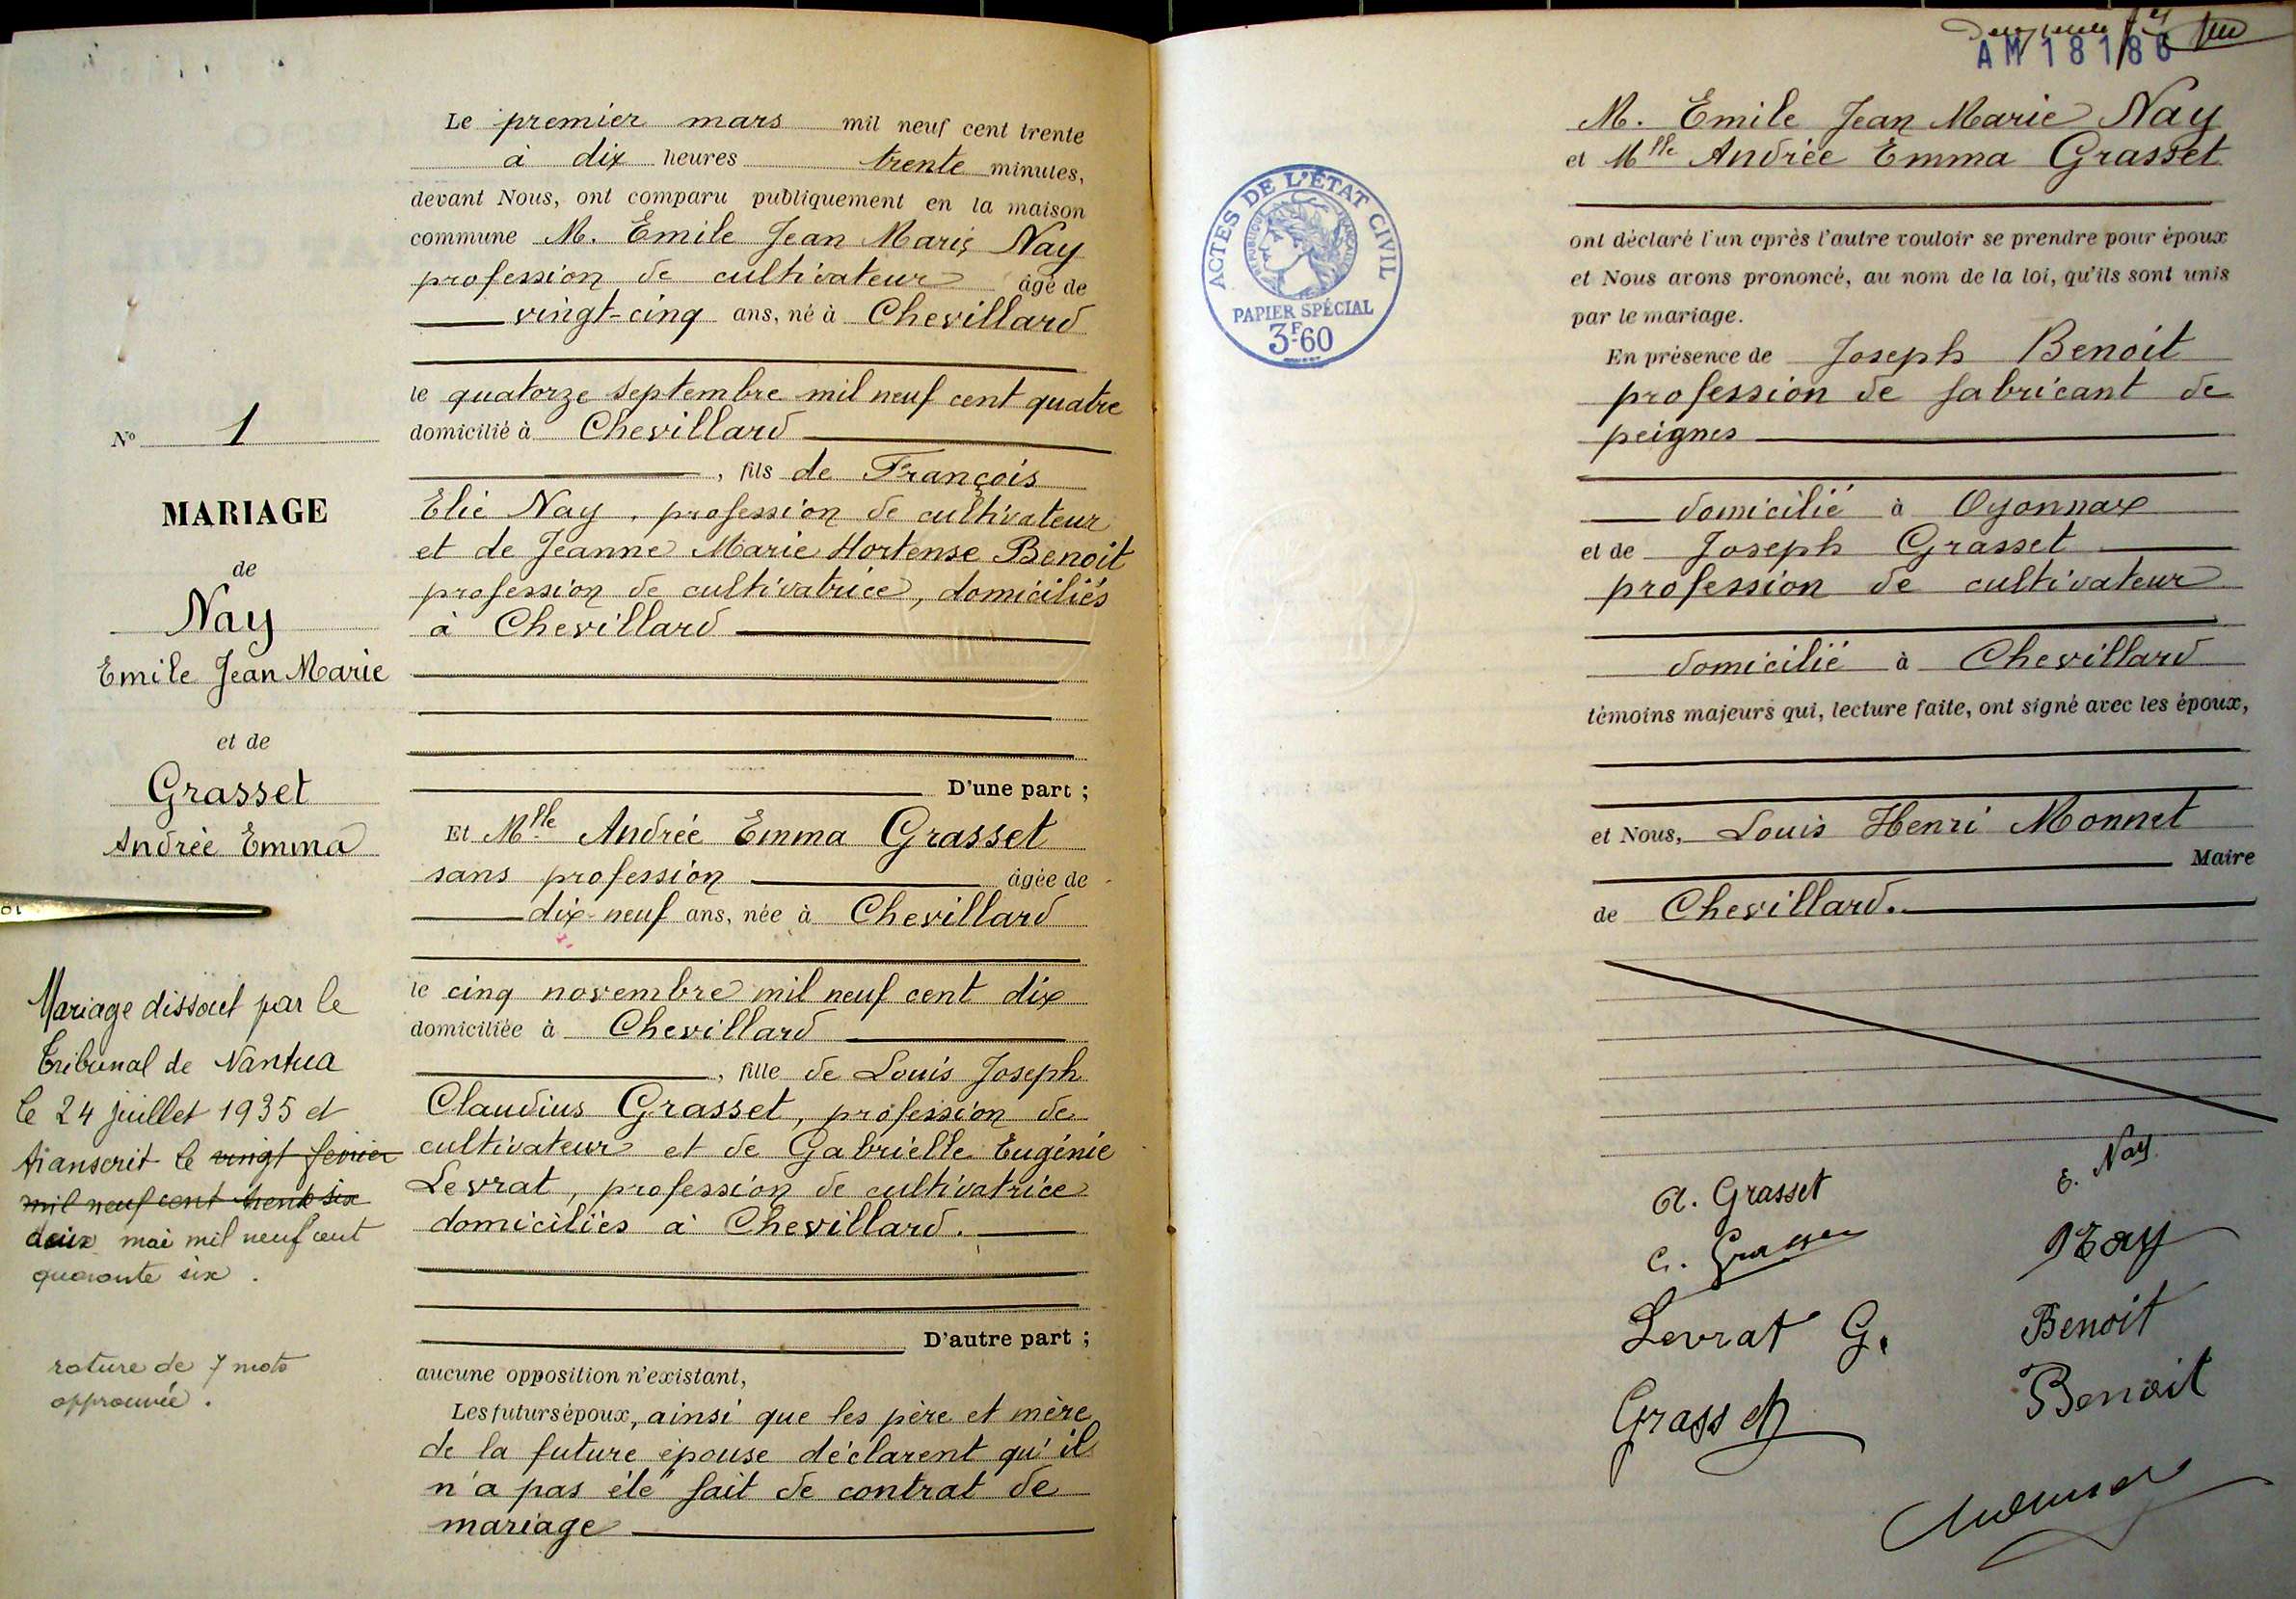 Le premier mars mil neuf cent trente
à dix heures trente minutes,
devant Nous, ont comparu publiquement en la maison
commune M. Emile Jean Marie Nay
profession de cultivateur âgé de
vingt-cinq ans, né à Chevillard
le quatorze septembre mil neuf cent quatre
domicilié à Chevillard
, fils de François
Elie Nay, profession de cultivateur
et de Jeanne Marie Hortense Benoit
profession de cultivatrice, domiciliés
à Chevillard
D'une part ;
Et Mlle Andrée Emma Grasset
sans profession âgée de
dix-neuf ans, née à Chevillard
le cinq novembre mil neuf cent dix
domiciliée à Chevillard
, fille de Louis Joseph
Claudius Grasset, profession de
cultivateur et de Gabrielle Eugénie
Levrat, profession de cultivatrice
domiciliés à Chevillard.
D'autre part ;
aucune opposition n'existant,
Les futurs époux, ainsi que les père et mère
de la future épouse déclarent qu'il
n'a pas été fait de contrat de
mariage
N° 1
MARIAGE
de
Nay
Emile Jean Marie
et de
Grasset
Andrée Emma
18
Mariage dissout par le
Tribunal de Nantua
le 24 juillet 1935 et
transcrit le vingt fevrier
mil neuf cent trente six
deux mai mil neuf cent
quarante six.
rature de 7 mots
approuvée.
AM 18186
M. Emile Jean Marie Nay
et Mlle Andrée Emma Grasset
ACTES DE L'ÉTAT CIVIL
RÉPUBLIQUE FRANÇAISE
PAPIER SPÉCIAL
3F60
ont déclaré l'un après l'autre vouloir se prendre pour époux
et Nous avons prononcé, au nom de la loi, qu'ils sont unis
par le mariage.
En présence de Joseph Benoit
profession de fabricant de
peignes
domicilié à Oyonnax
et de Joseph Grasset
profession de cultivateur
domicilié à Chevillard
témoins majeurs qui, lecture faite, ont signé avec les époux,
et Nous, Louis Henri Monnet
Maire
de Chevillard.
A. Grasset
E. Nay
C. Grasset
Nay
Levrat G.
Benoit
Grasset
Benoit